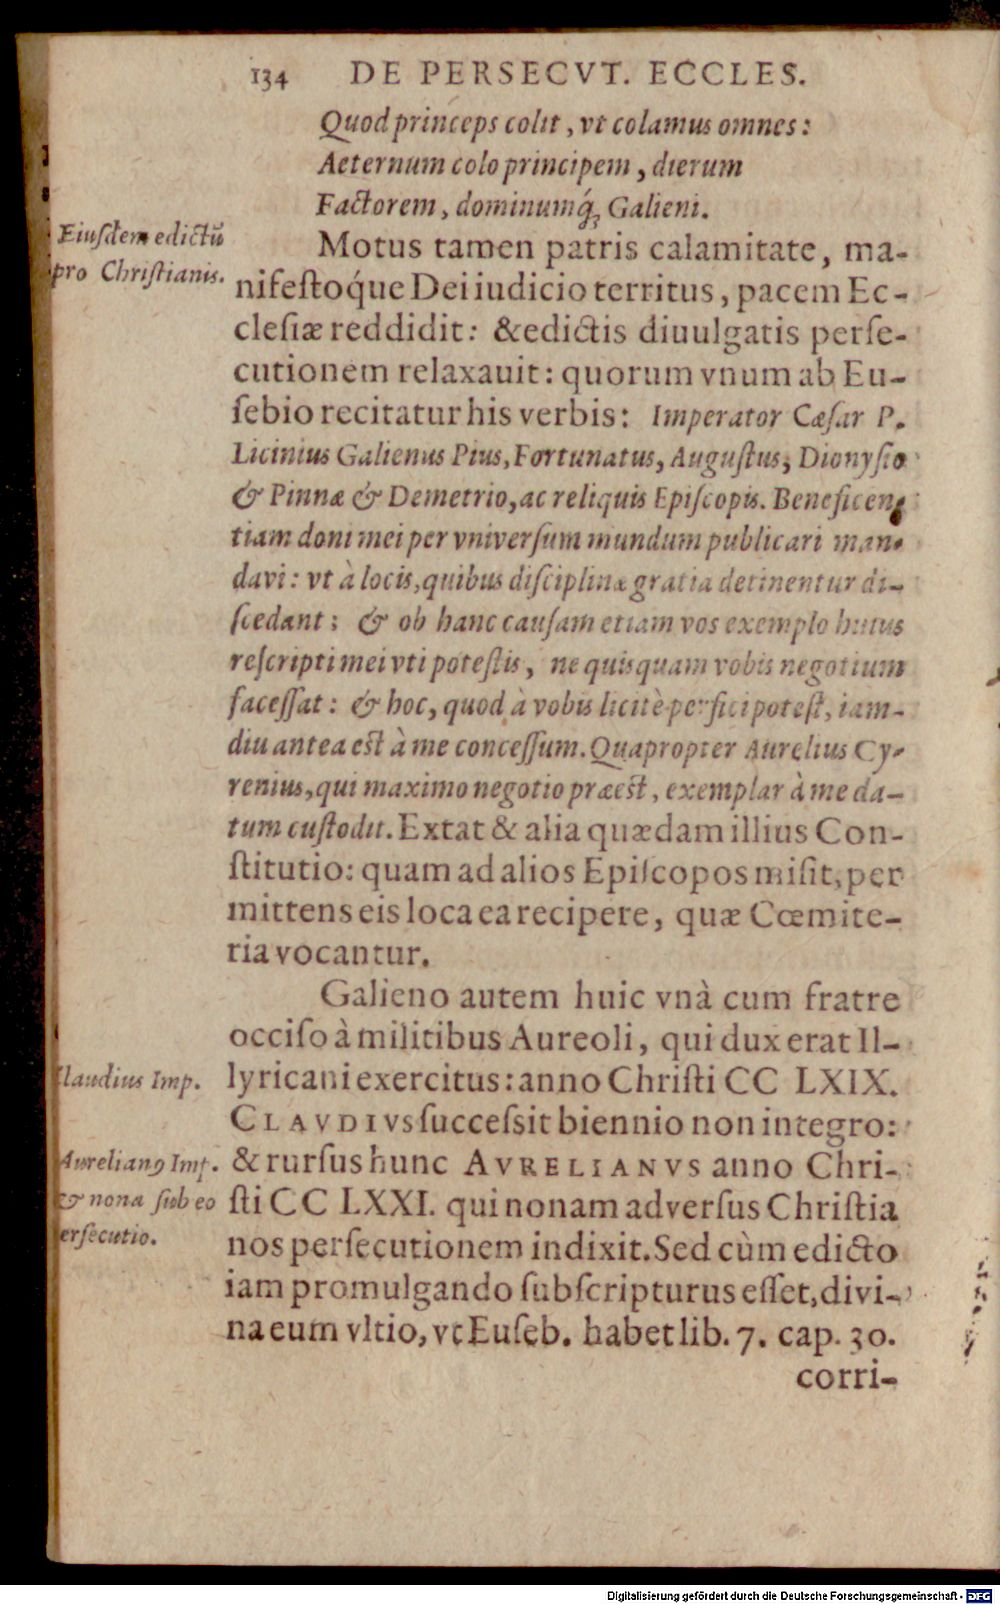 134 DE PERSECVT. ECCLES.
Quod princeps colit, vt colamus omnes:
Aeternum colo principem, dierum
Factorem, dominumq́; Galieni.
Eiusdem edictũ
pro Christianis.
Motus tamen patris calamitate, ma-
nifestóque Dei iudicio territus, pacem Ec-
clesiæ reddidit: & edictis diuulgatis perse-
cutionem relaxauit: quorum vnum ab Eu-
sebio recitatur his verbis: Imperator Cæsar P.
Licinius Galienus Pius, Fortunatus, Augustus, Dionysio
& Pinnæ & Demetrio, ac reliquis Episcopis. Beneficen-
tiam doni mei per vniversum mundum publicari man-
davi: vt à locis, quibus disciplinæ gratia detinentur di-
scedant: & ob hanc causam etiam vos exemplo huius
rescripti mei vti potestis, ne quisquam vobis negotium
facessat: & hoc, quod à vobis licitè perfici potest, iam-
diu antea est à me concessum. Quapropter Aurelius Cy-
renius, qui maximo negotio præest, exemplar à me da-
tum custodit. Extat & alia quædam illius Con-
stitutio: quam ad alios Episcopos misit, per
mittens eis loca ea recipere, quæ Cœmite-
ria vocantur.
Galieno autem huic vnà cum fratre
occiso à militibus Aureoli, qui dux erat Il-
Claudius Imp.
lyricani exercitus: anno Christi CC LXIX.
CLAVDIVS successit biennio non integro:
Aurelianꝰ Imp.
& nona sub eo
ersecutio.
& rursus hunc AVRELIANVS anno Chri-
sti CC LXXI. qui nonam adversus Christia
nos persecutionem indixit. Sed cùm edicto
iam promulgando subscripturus esset, divi-
na eum vltio, vt Euseb. habet lib. 7. cap. 30.
corri-
Digitalisierung gefördert durch die Deutsche Forschungsgemeinschaft - DFG